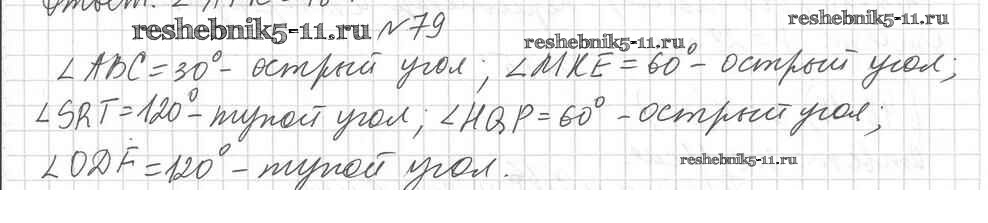 Ответ:
reshebnik5-11.ru №79 reshebnik5-11.ru
reshebnik5-11.ru
∠ABC=30° - острый угол; ∠MKE=60° - острый угол;
∠SRT=120° - тупой угол; ∠HQP=60° - острый угол;
∠ODF=120° - тупой угол. reshebnik5-11.ru